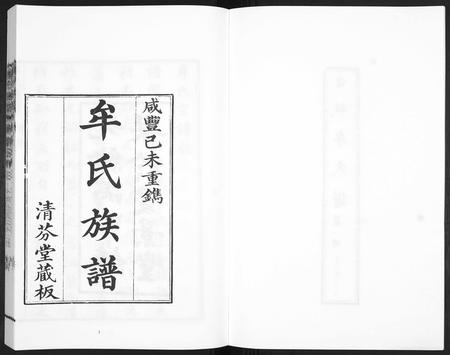 咸豐己未重鐫
牟氏族譜
清芬堂蔵板